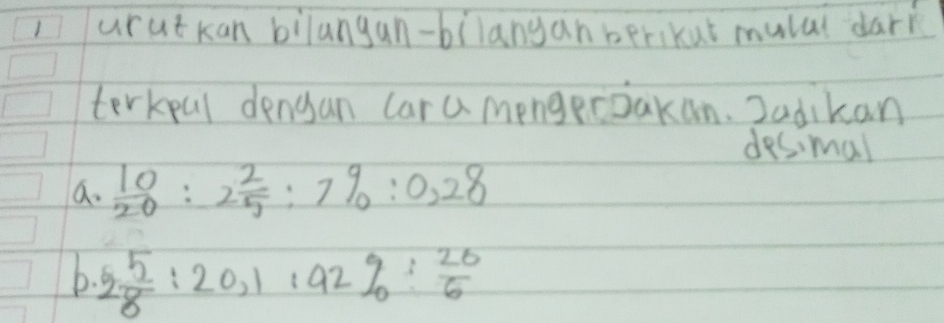 1 urutkan bilangan-bilangan berikut mulai dari
terkeul dengan cara mengerjakan. Jadikan
desimal
a. 10/20 : 2 2/5 : 7% : 0,28
b. 2 5/8 : 20,1 : 92% : 26/6